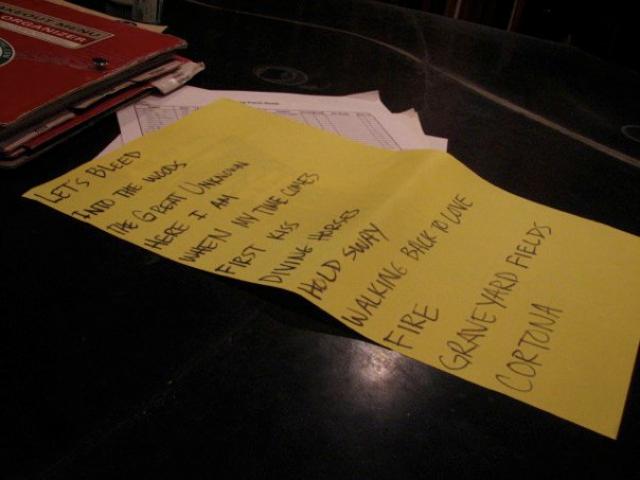 TAKEOUT MENU
ORGANIZER
LET'S BLEED
INTO THE WOODS
THE GREAT UNKNOWN
HERE I AM
WHEN MY TIME COMES
FIRST KISS
DIVING HORSES
HOLD SWAY
WALKING BACK TO LOVE
FIRE
GRAVEYARD FIELDS
CORTONA